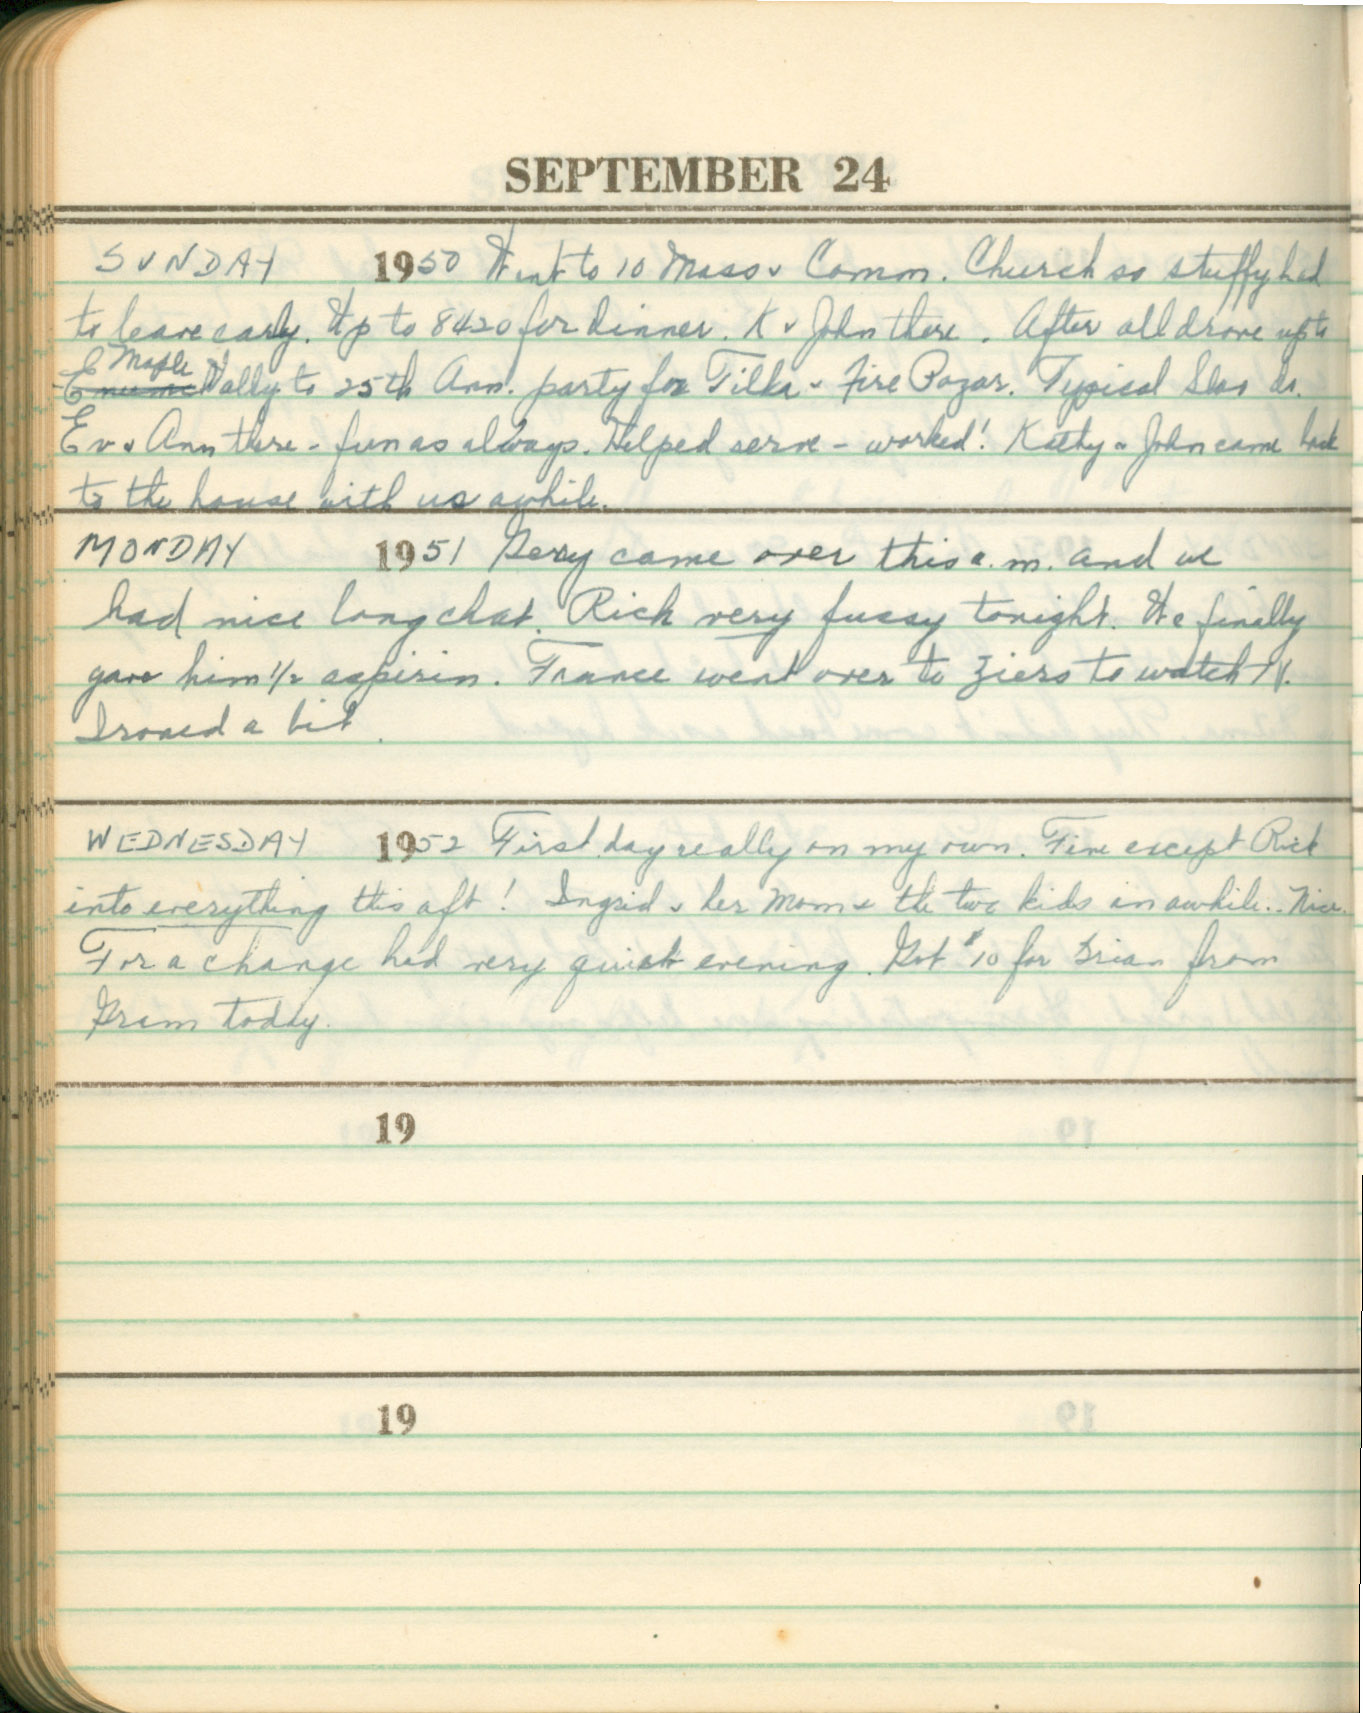 SEPTEMBER 24
SUNDAY 1950 Went to 10 Mass & Comm. Church so stuffy had
to leave early. Up to 8420 for dinner. K & John there. After all drove up to
E Maple Vally to 25th Ann. party for Tilka & Pozar. Typical
Ev & Ann there - fun as always. Helped serve - worked! Kathy & John came back
to the house with us awhile.
MONDAY 1951 came over this a.m. and we
had nice long chat. Rick very fussy tonight. We finally
gave him 1/2 aspirin. France went over to Ziers to watch TV.
Ironed a bit.
WEDNESDAY 1952 First day really on my own. Fine except Rick
into everything this aft! Ingrid & her Mom & the two kids in awhile.. Nice.
For a change had very quiet evening. Got $10 for Brian from
Gram today.
19
19